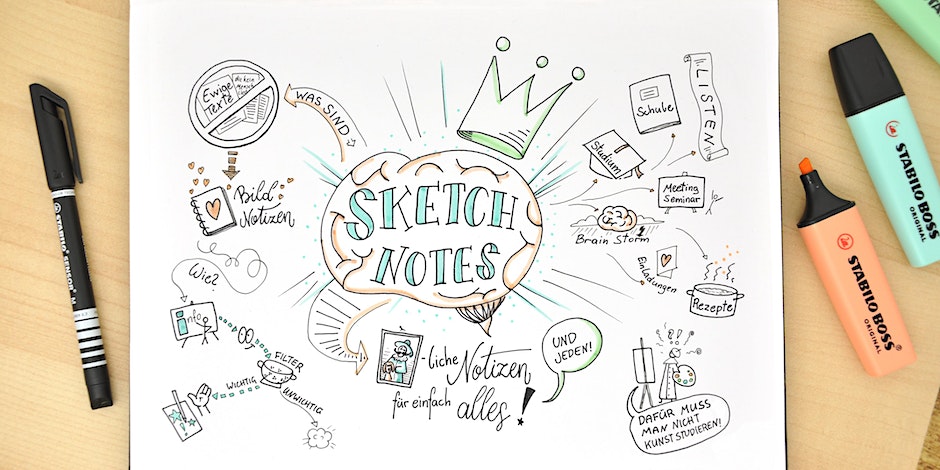 Ewige
Texte
die kein
Mensch
WAS SIND
Bild
Notizen
Wie?
Info
FILTER
WICHTIG
UNWICHTIG
SKETCH
NOTES
-liche Notizen
für einfach alles!
UND
JEDEN!
LISTEN
Schule
Studium
Meeting
Seminar
Brain Storm
Einladungen
Rezepte
DAFÜR MUSS
MAN NICHT
KUNST STUDIEREN!
STABILO SENSOR
STABILO BOSS
ORIGINAL
STABILO BOSS
ORIGINAL